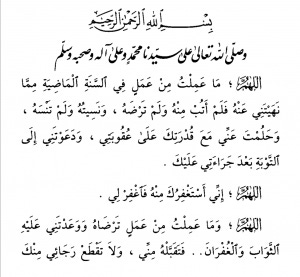 بِسْمِ اللهِ الرَّحْمٰنِ الرَّحِيْمِ
وصلّى الله تعالى على سيّدنا محمّد وعلى آله وصحبه وسلّم
اَللّٰهُمَّ ؛ مَا عَمِلْتُ مِنْ عَمَلٍ فِي السَّنَةِ الْمَاضِيَةِ مِمَّا
نَهَيْتَنِي عَنْهُ فَلَمْ أَتُبْ مِنْهُ وَلَمْ تَرْضَهُ ، وَنَسِيْتُهُ وَلَمْ تَنْسَهُ ،
وَحَلُمْتَ عَنِّي مَعَ قُدْرَتِكَ عَلَى عُقُوبَتِي ، وَدَعَوْتَنِي إِلَى
التَّوْبَةِ بَعْدَ جَرَاءَتِي عَلَيْكَ .
اَللّٰهُمَّ ؛ إِنِّي أَسْتَغْفِرُكَ مِنْهُ فَاغْفِرْ لِي .
اَللّٰهُمَّ ؛ وَمَا عَمِلْتُ مِنْ عَمَلٍ تَرْضَاهُ وَوَعَدْتَنِي عَلَيْهِ
الثَّوَابَ وَالْغُفْرَانَ .. فَتَقَبَّلْهُ مِنِّي ، وَلاَ تَقْطَعْ رَجَائِي مِنْكَ